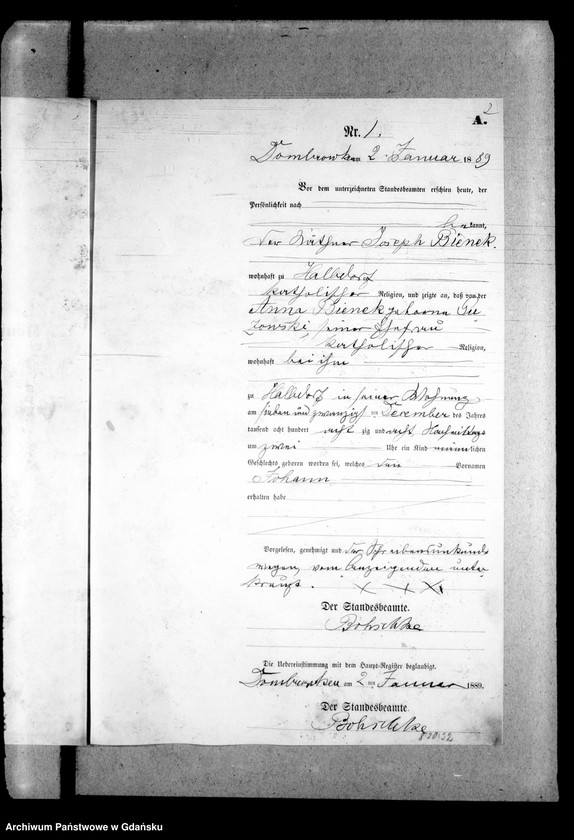 2
A.
Nr. 1.
Dombrowken am 2 Januar 1889
Vor dem unterzeichneten Standesbeamten erschien heute, der
Persönlichkeit nach
bekannt,
der Käthner Joseph Bienek.
wohnhaft zu Halbdorf
katholischer Religion, und zeigte an, daß von der
Anna Bienek geborne
seiner Ehefrau
katholischer Religion,
wohnhaft bei ihm
zu Halbdorf in seiner Wohnung
am sieben und zwanzigsten December des Jahres
tausend acht hundert achtzig und acht Nachmittags
um zwei Uhr ein Kind männlichen
Geschlechts geboren worden sei, welches den Vornamen
Johann
erhalten habe
Vorgelesen, genehmigt und der Schreibensunkunde
wegen vom Anzeigenden unter
kreuzt. X X X
Der Standesbeamte.
Bohschtke
Die Uebereinstimmung mit dem Haupt-Register beglaubigt.
Dombrowken am 2 ten Januar 1889.
Der Standesbeamte.
Bohschtke
Archiwum Państwowe w Gdańsku